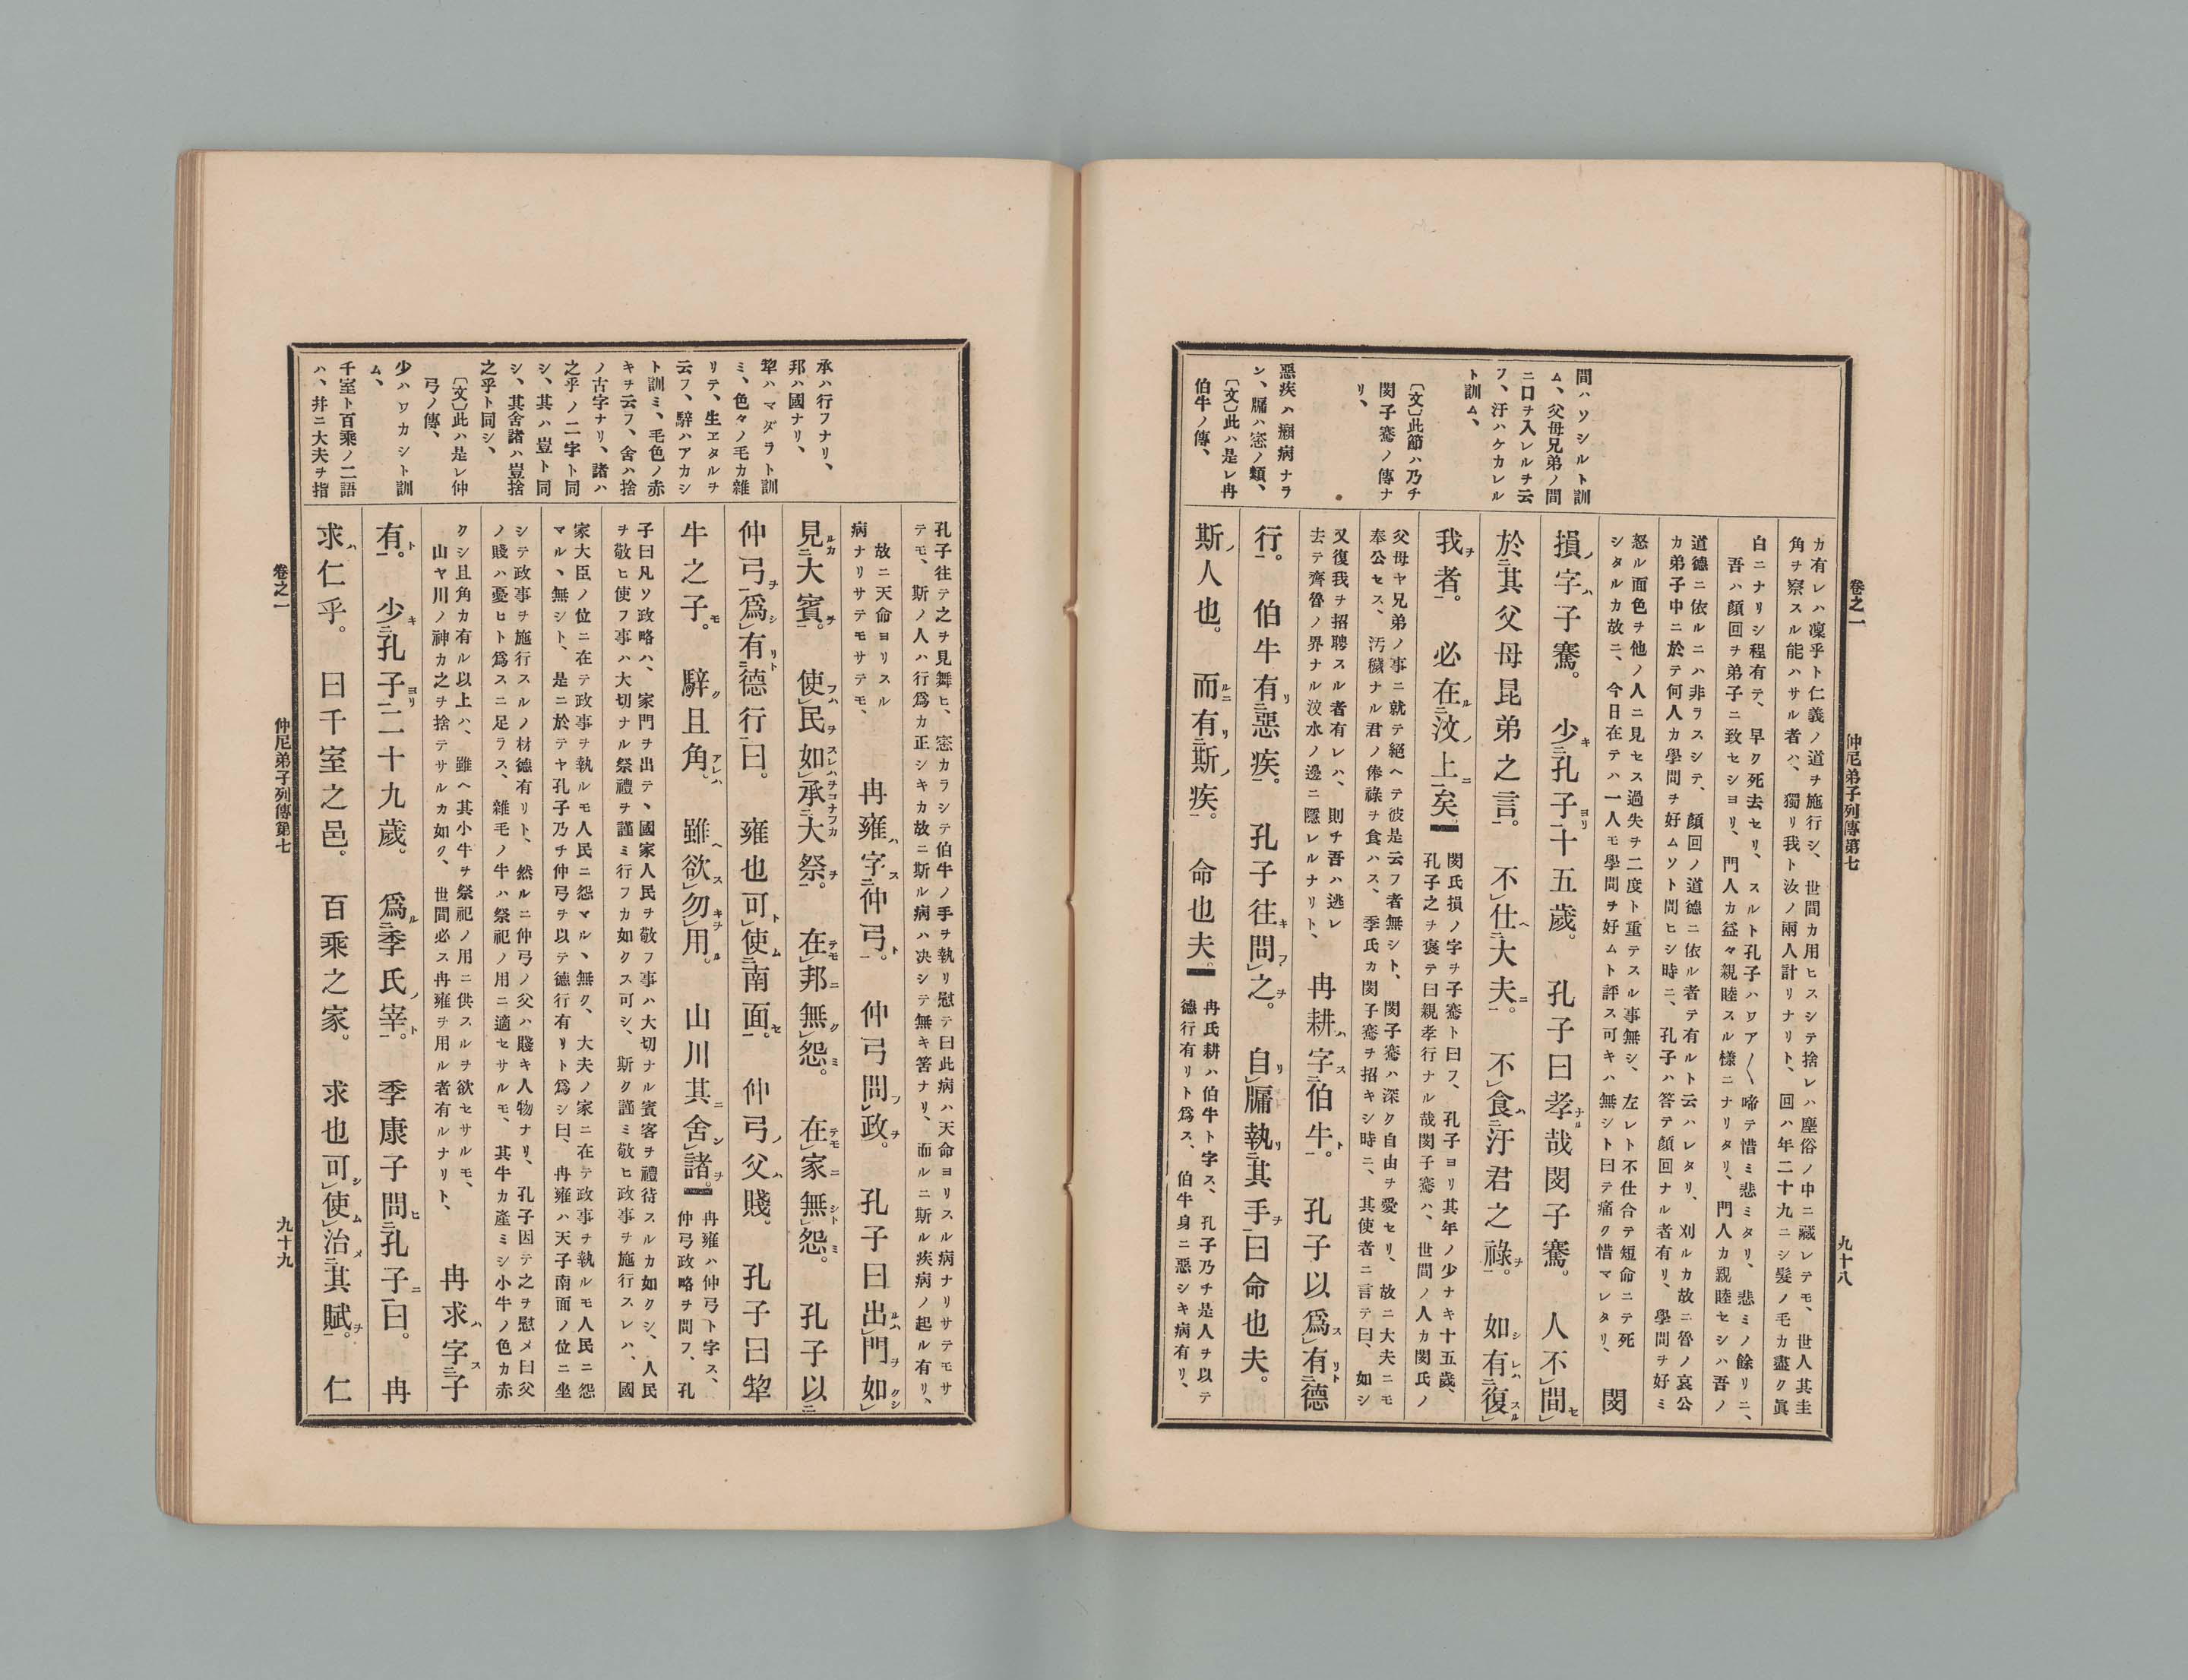 卷之一
仲尼弟子列傳第七
九十八
間ハソシルト訓
ム、父母兄弟ノ間
ニ口ヲ入レルヲ云
フ、汙ハケカレル
ト訓ム、
〔文〕此節ハ乃チ
閔子騫ノ傳ナ
リ、
惡疾ハ癩病ナラ
ン、牖ハ窓ノ類、
〔文〕此ハ是レ冉
伯牛ノ傳、
カ有レハ凜乎ト仁義ノ道ヲ施行シ、世間カ用ヒスシテ捨レハ塵俗ノ中ニ藏レテモ、世人其圭
角ヲ察スル能ハサル者ハ、獨リ我ト汝ノ兩人計リナリト、回ハ年二十九ニシ髮ノ毛カ盡ク眞
白ニナリシ程有テ、早ク死去セリ、スルト孔子ハワア〱啼テ惜ミ悲ミタリ、悲ミノ餘リニ、
吾ハ顏回ヲ弟子ニ致セシヨリ、門人カ益々親睦スル樣ニナリタリ、門人カ親睦セシハ吾ノ
道德ニ依ルニハ非ラスシテ、顏回ノ道德ニ依ル者テ有ルト云ハレタリ、刈ルカ故ニ魯ノ哀公
カ弟子中ニ於テ何人カ學問ヲ好ムソト問ヒシ時ニ、孔子ハ答テ顏回ナル者有リ、學問ヲ好ミ
怒ル面色ヲ他ノ人ニ見セス過失ヲ二度ト重テスル事無シ、左レト不仕合テ短命ニテ死
シタルカ故ニ、今日在テハ一人モ學問ヲ好ムト評ス可キハ無シト曰テ痛ク惜マレタリ、
閔
損字子騫。少孔子十五歲。孔子曰孝哉閔子騫。人不間
於其父母昆弟之言。不仕大夫。不食汙君之祿。如有復
我者。必在汶上矣
閔氏損ノ字ヲ子騫ト曰フ、孔子ヨリ其年ノ少ナキ十五歲、
孔子之ヲ褒テ曰親孝行ナル哉閔子騫ハ、世間ノ人カ閔氏ノ
父母ヤ兄弟ノ事ニ就テ絕ヘテ彼是云フ者無シト、閔子騫ハ深ク自由ヲ愛セリ、故ニ大夫ニモ
奉公セス、汚穢ナル君ノ俸祿ヲ食ハス、季氏カ閔子騫ヲ招キシ時ニ、其使者ニ言テ曰、如シ
又復我ヲ招聘スル者有レハ、則チ吾ハ逃レ
去テ齊魯ノ界ナル汶水ノ邊ニ隱レルナリト、
冉耕字伯牛。孔子以爲有德
行。伯牛有惡疾。孔子往問之。自牖執其手曰命也夫。
斯人也。而有斯疾。命也夫
冉氏耕ハ伯牛ト字ス、孔子乃チ是人ヲ以テ
德行有リト爲ス、伯牛身ニ惡シキ病有リ、
承ハ行フナリ、
邦ハ國ナリ、
犂ハマダラト訓
ミ、色々ノ毛カ雜
リテ、生ヱタルヲ
云フ、騂ハアカシ
ト訓ミ、毛色ノ赤
キヲ云フ、舍ハ捨
ノ古字ナリ、諸ハ
之乎ノ二字ト同
シ、其ハ豈ト同
シ、其舍諸ハ豈捨
之乎ト同シ、
〔文〕此ハ是レ仲
弓ノ傳、
少ハワカシト訓
ム、
千室ト百乘ノ二語
ハ、幷ニ大夫ヲ指
孔子往テ之ヲ見舞ヒ、窓カラシテ伯牛ノ手ヲ執リ慰テ曰此病ハ天命ヨリスル病ナリサテモサ
テモ、斯ノ人ハ行爲カ正シキカ故ニ斯ル病ハ決シテ無キ筈ナリ、而ルニ斯ル疾病ノ起ル有リ、
故ニ天命ヨリスル
病ナリサテモサテモ、
冉雍字仲弓。仲弓問政。孔子曰出門如
見大賓。使民如承大祭。在邦無怨。在家無怨。孔子以
仲弓爲有德行曰。雍也可使南面。仲弓父賤。孔子曰犂
牛之子。騂且角。雖欲勿用。山川其舍諸。
冉雍ハ仲弓ト字ス、
仲弓政略ヲ問フ、孔
子曰凡ソ政略ハ、家門ヲ出テ、國家人民ヲ敬フ事ハ大切ナル賓客ヲ禮待スルカ如クシ、人民
ヲ敬ヒ使フ事ハ大切ナル祭禮ヲ謹ミ行フカ如クス可シ、斯ク謹ミ敬ヒ政事ヲ施行スレハ、國
家大臣ノ位ニ在テ政事ヲ執ルモ人民ニ怨マル、無ク、大夫ノ家ニ在テ政事ヲ執ルモ人民ニ怨
マル、無シト、是ニ於テヤ孔子乃チ仲弓ヲ以テ德行有リト爲シ曰、冉雍ハ天子南面ノ位ニ坐
シテ政事ヲ施行スルノ材德有リト、然ルニ仲弓ノ父ハ賤キ人物ナリ、孔子因テ之ヲ慰メ曰父
ノ賤ハ憂ヒト爲スニ足ラス、雜毛ノ牛ハ祭祀ノ用ニ適セサルモ、其牛カ產ミシ小牛ノ色カ赤
クシ且角カ有ル以上ハ、雖ヘ其小牛ヲ祭祀ノ用ニ供スルヲ欲セサルモ、
山ヤ川ノ神カ之ヲ捨テサルカ如ク、世間必ス冉雍ヲ用ル者有ルナリト、
冉求字子
有。少孔子二十九歲。爲季氏宰。季康子問孔子曰。冉
求仁乎。曰千室之邑。百乘之家。求也可使治其賦。仁
卷之一
仲尼弟子列傳第七
九十九